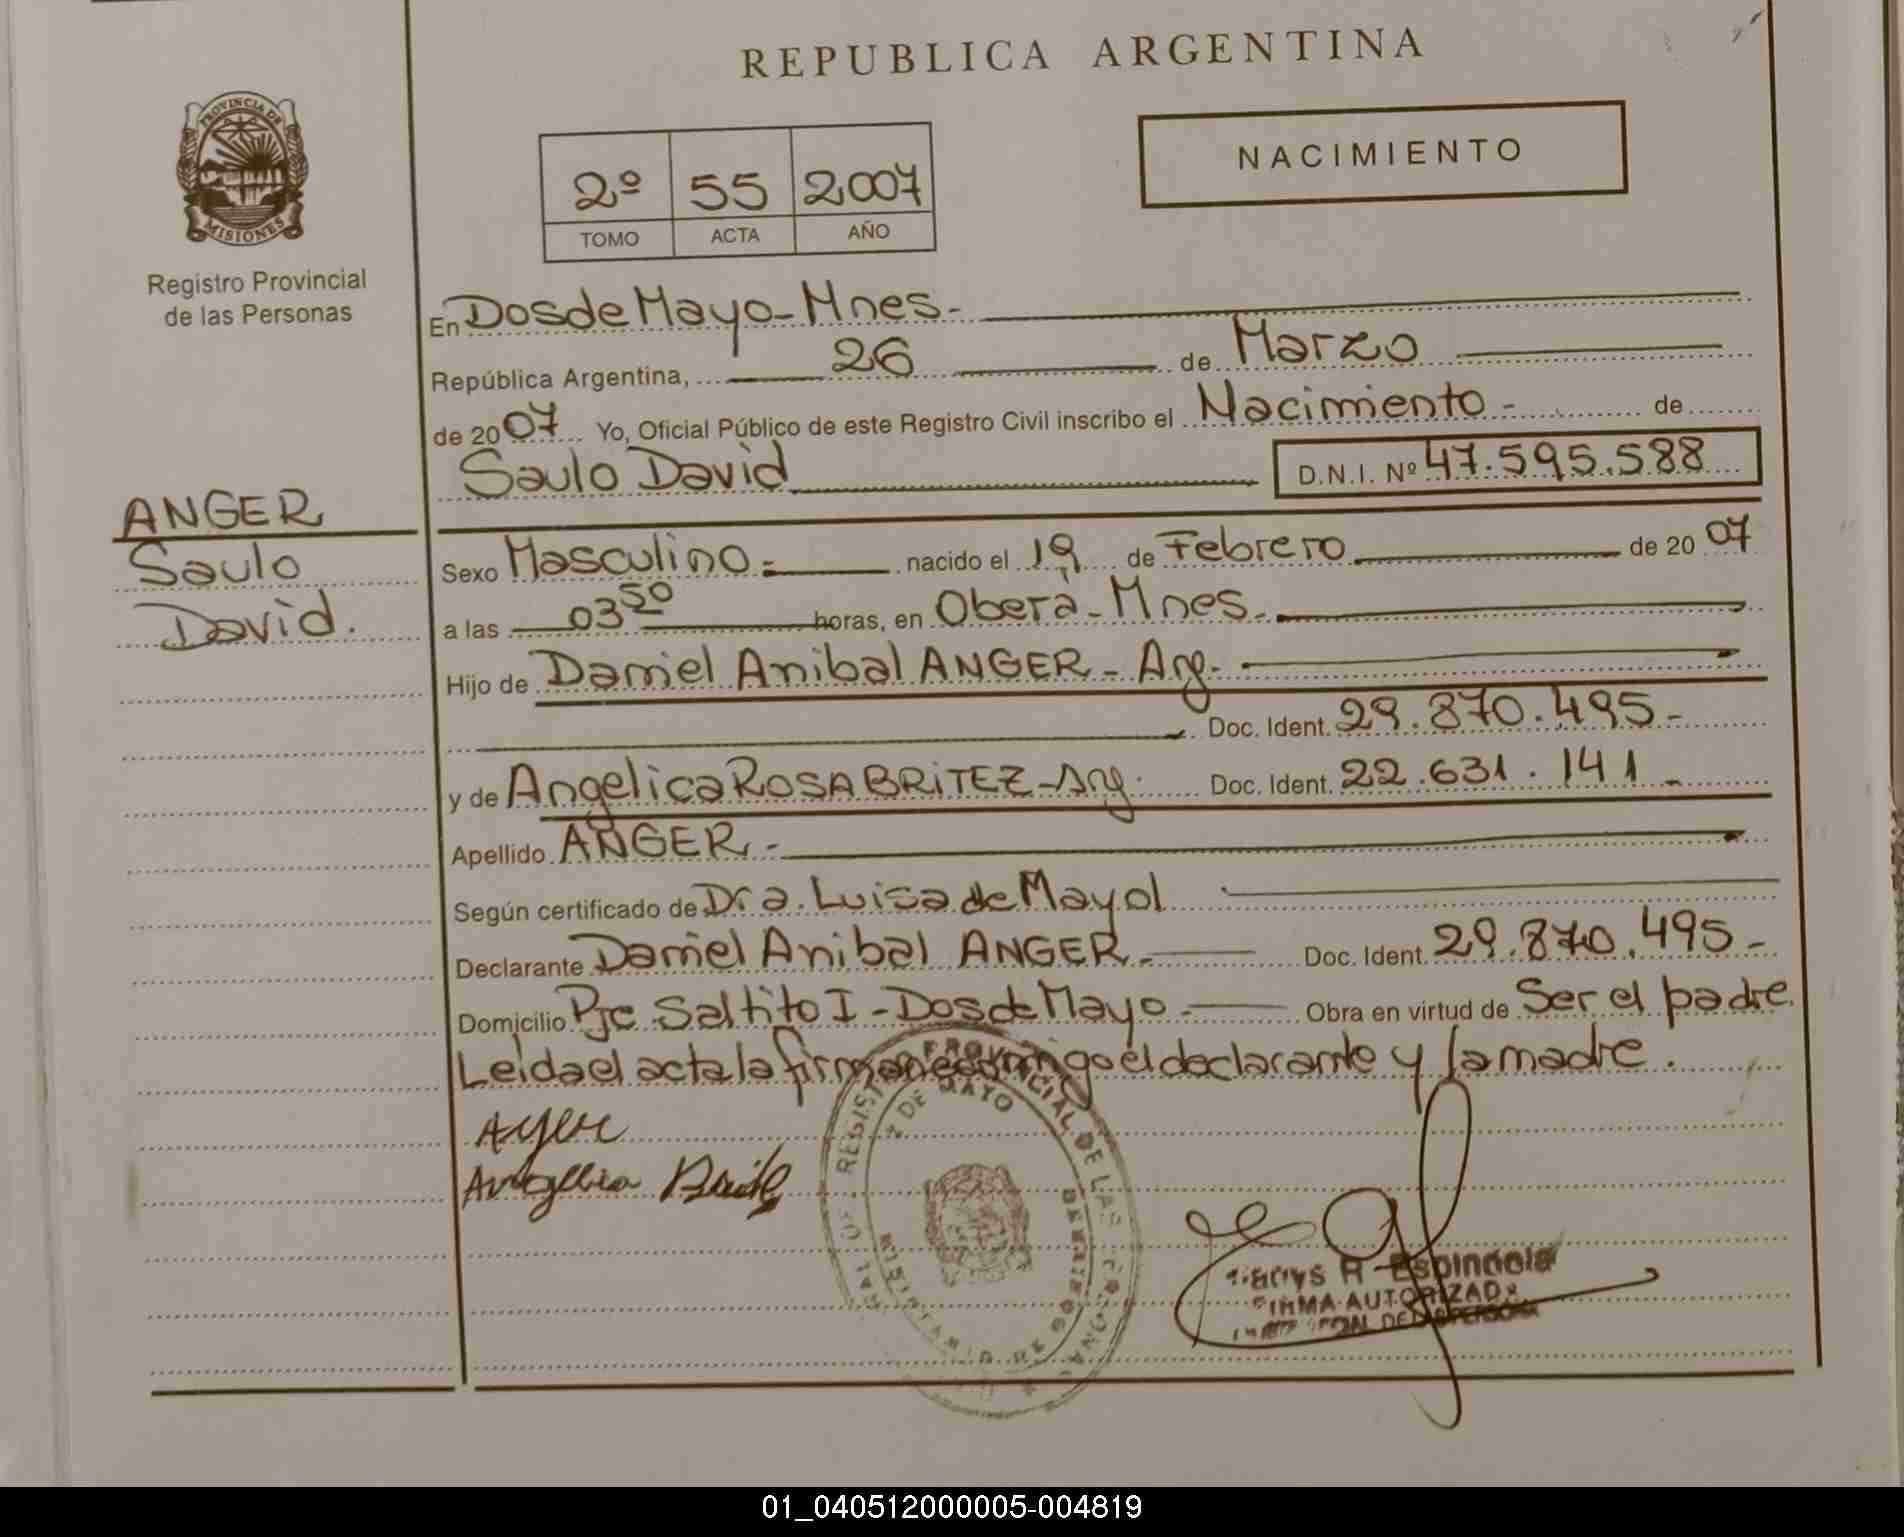 REPUBLICA ARGENTINA
PROVINCIA DE
MISIONES
Registro Provincial
de las Personas
NACIMIENTO
2º 55 2007
TOMO ACTA AÑO
En Dos de Mayo - Mnes.-
República Argentina, 26 de Marzo
de 2007 Yo, Oficial Público de este Registro Civil inscribo el Nacimiento - de
Saulo David D.N.I. Nº 47.595.588
ANGER
Saulo
David.
Sexo Masculino.- nacido el 19 de Febrero de 2007
a las 03 50 horas, en Oberà - Mnes.-
Hijo de Daniel Anibal ANGER - Arg.-
Doc. Ident. 29.870.495-
y de Angelica ROSA BRITEZ - Arg. Doc. Ident. 22.631.141-
Apellido ANGER.-
Según certificado de Dra. Luisa de Mayol
Declarante Daniel Anibal ANGER.- Doc. Ident. 29.870.495-
Domicilio Pje Saltito I - Dos de Mayo.- Obra en virtud de Ser el padre.
Leida el acta la firman conmigo el declarante y la madre.
PROVINCIAL DE LAS
2 DE MAYO
Espindola
FIRMA AUTORIZADA
01_040512000005-004819